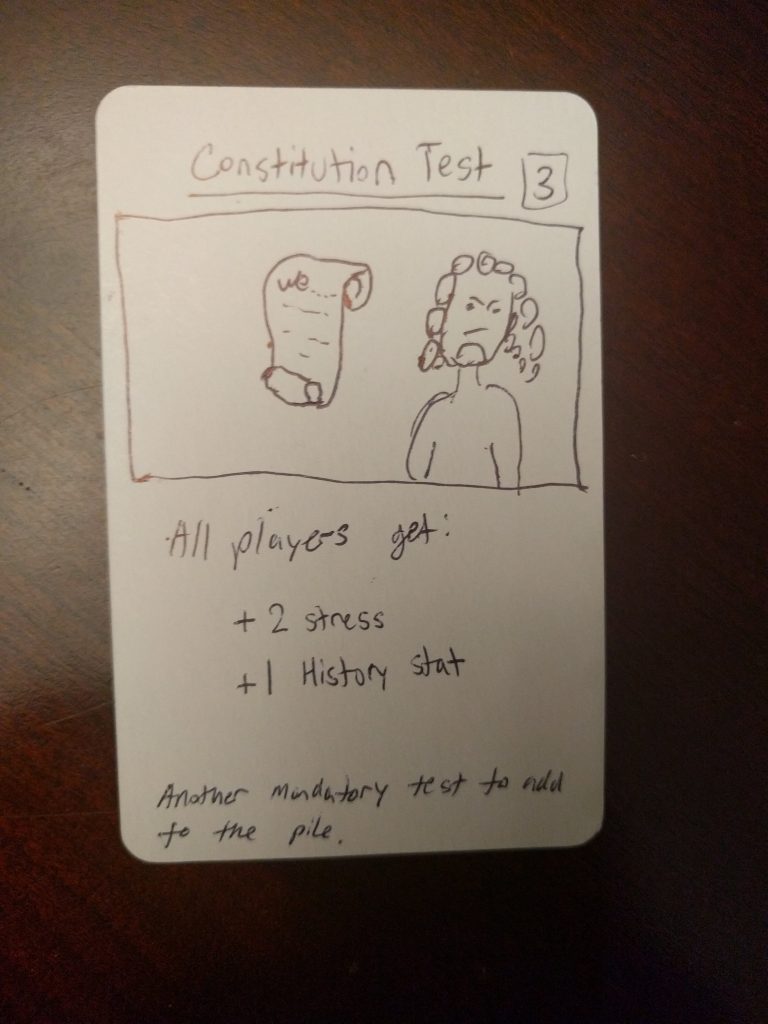 Constitution Test 3
we....
All players get:
+2 stress
+1 History stat
Another mandatory test to add
to the pile.